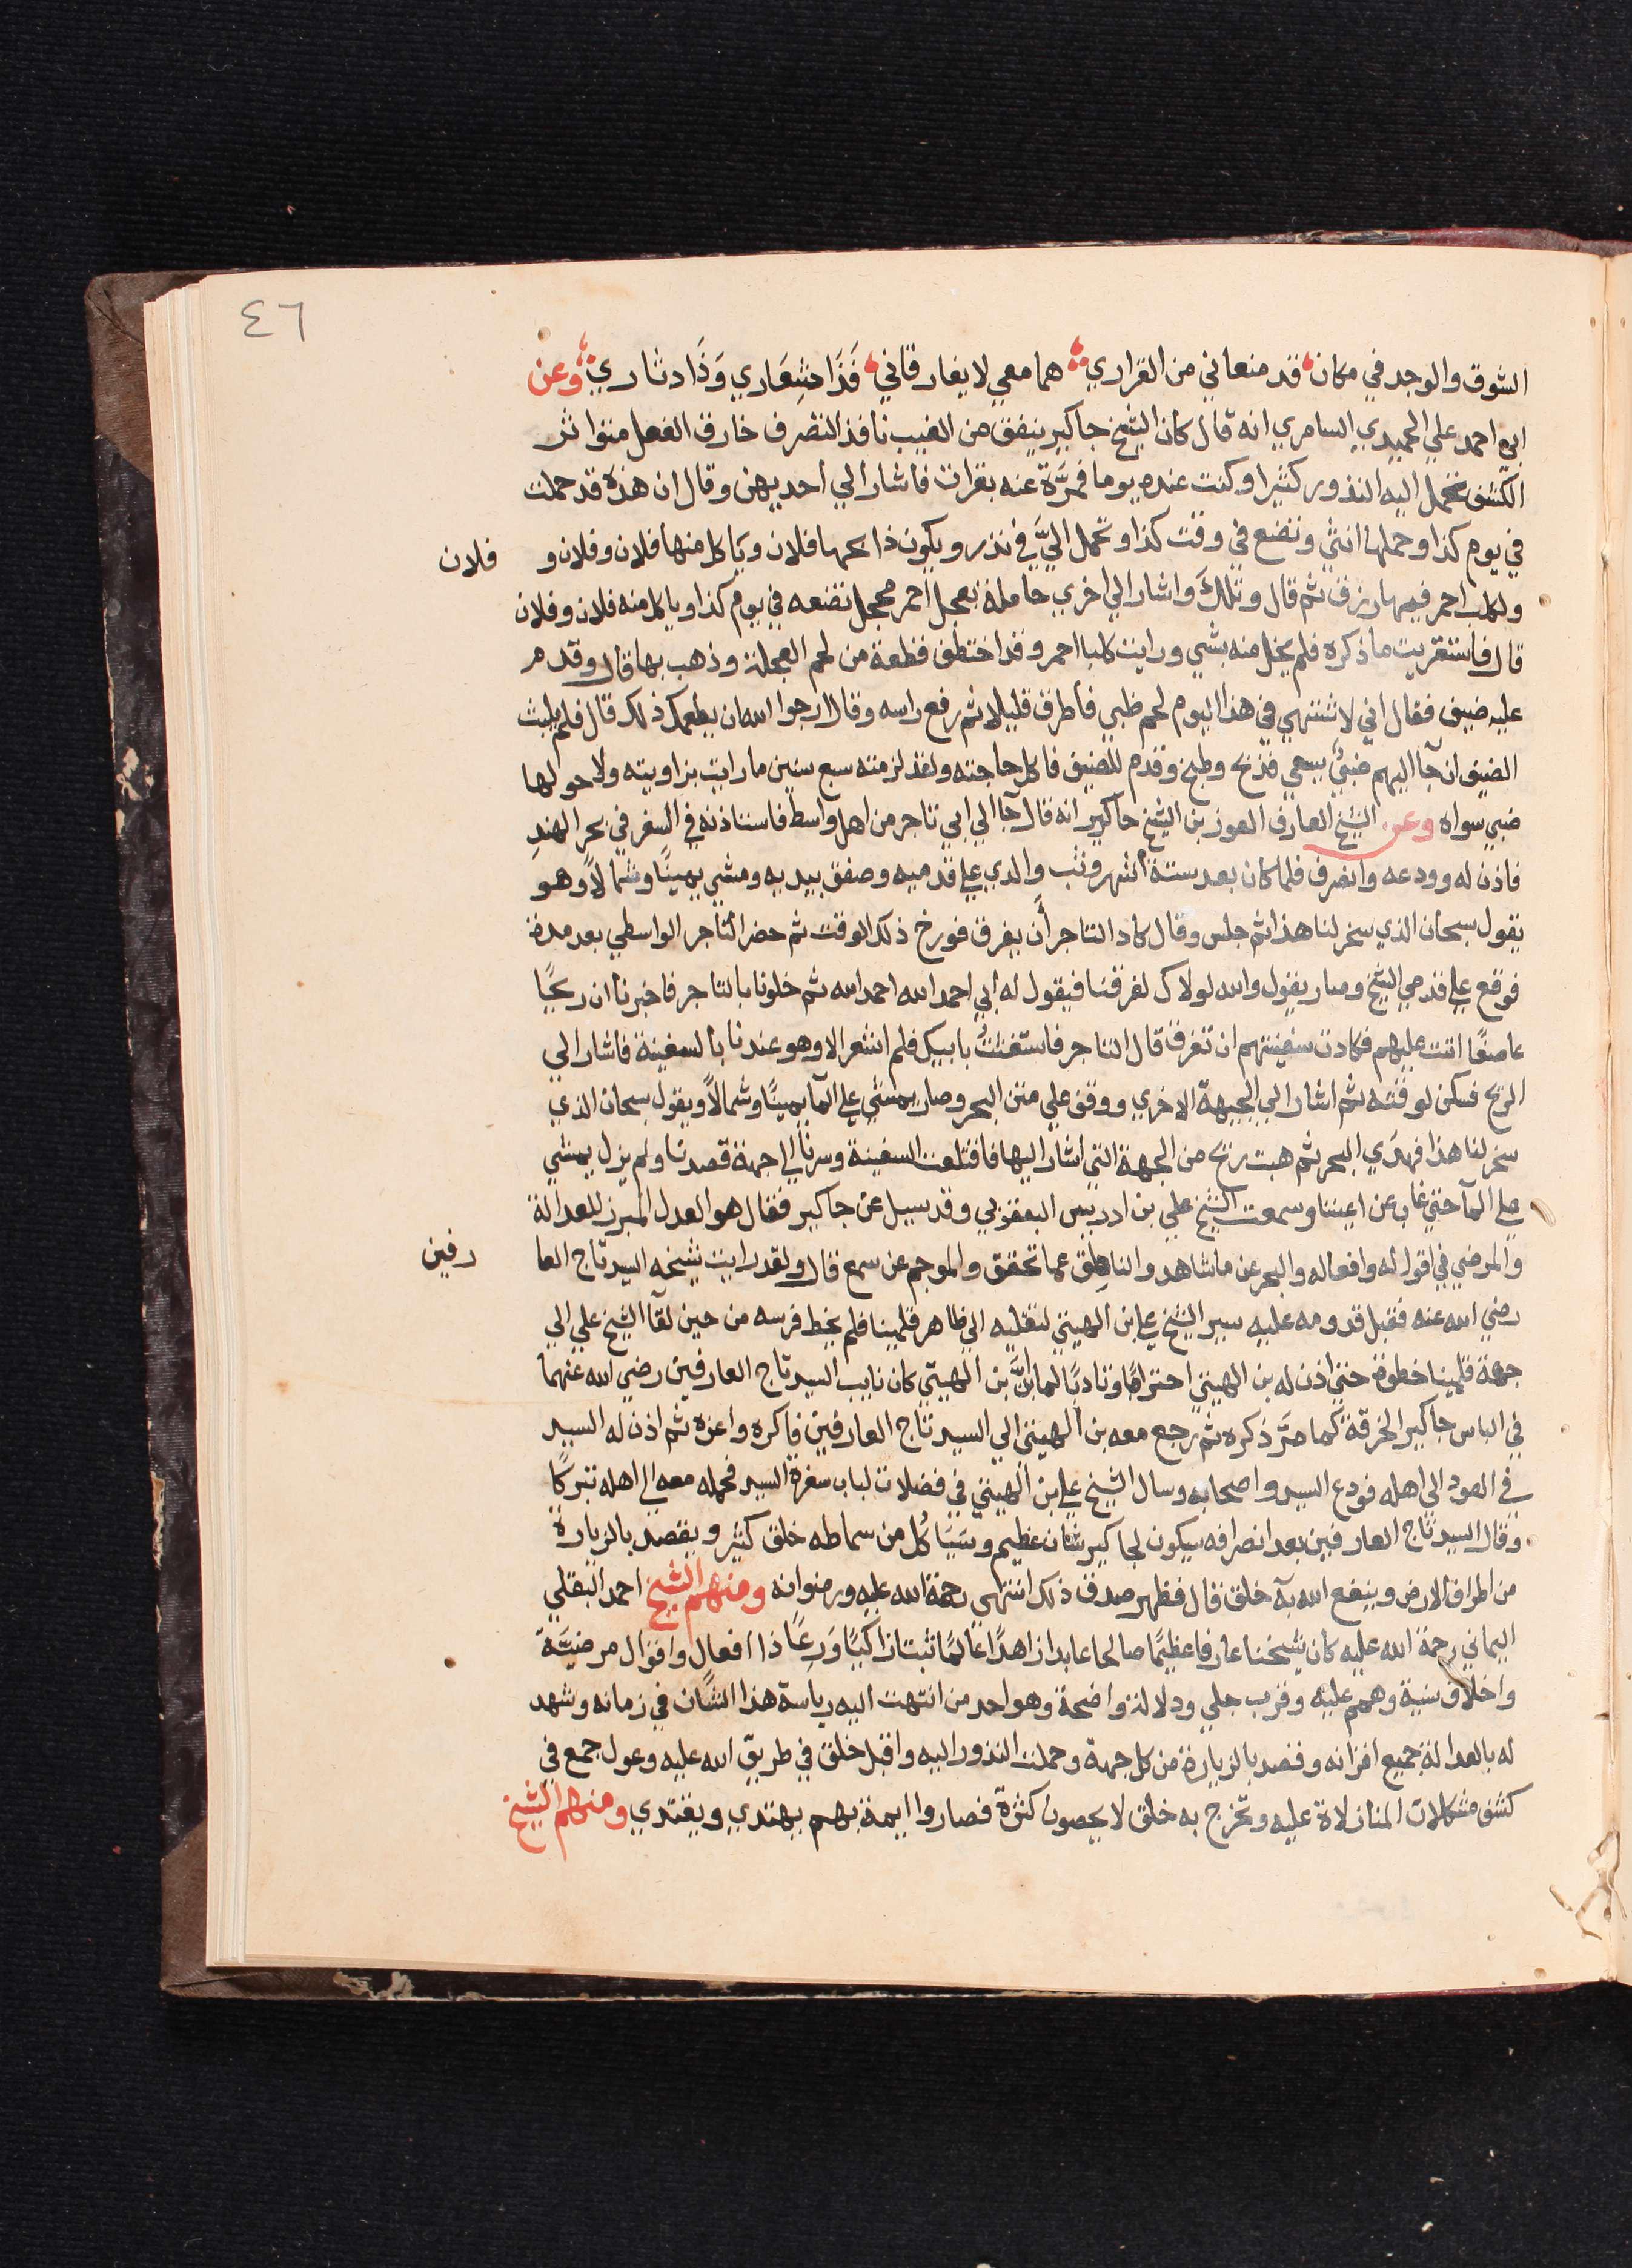 ٤٦
الشوق والوجد في مكان قد منعاني من القراري هما معي لا يفارقاني فَذَا شِعَاري وَذَا دثاري وعن
ابي احمد علي الحميدي السامري انه قال كان الشيخ جاكير ينفق من الغيب نافذ التصرف خارق الفعل متواتر
الكشف تحمل اليه النذور كثيرا وكنت عنده يوما فمرَّة عنه بقرات فاشار الي احديهن وقال ان هذه قد حملت
في يوم كذا وحملها انثي وتضع في وقت كذا وتحمل اليَّ في نذر ويكون ذابحها فلان ويَاكل منها فلان وفلان و فلان
ولكلب احمر فيها رزق ثم قال وتلك واشار الي اخري حاملة بعجل احمر محجل تضعه في يوم كذا وياكل منه فلان وفلان
قال فاستقريت ما ذكره فلم يخل منه بشي ورايت كلبا احمر وقد اختطف قطعة من لحم العجلة وذهب بها قال وقدم
عليه ضيف فقال اني لاشتهي في هذا اليوم لحم ظبي فأطرق قليلا ثم رفع راسه وقال ارجوا الله ان يطعمك ذلك قال فلم يلبث
الضيف ان جآ اليهم ضبيٌ يسعي فذبح وطبخ وقدم للضيف فاكل حاجته ولقد لزمته سبع سنين ما رايت بزاويته ولا حولها
ضبي سواه وعن الشيخ العارف العوز بن الشيخ جاكير انه قال جآ الي ابي تاجر من اهل واسط فاستاذنه في السفر في بحر الهندِ
فاذن له وودعه وانصرف فلما كان بعد ستة أشهر وثب والدي علي قدميه وصفق بيديه ومشي يمينًا وشمالًا وهو
يقول سبحان الذي سخر لنا هذا ثم جلس وقال كاد التاجر أن يغرق فورخ ذلك الوقت ثم حضر التاجر الواسطي بعد مدة
فوقع علي قدمي الشيخ وصار يقول والله لولاك لغرقنا فيقول له ابي احمد الله احمد الله ثم خلونا بالتاجر فاخبرنا ان ريحًا
عاصفًا اتت عليهم فكادت سفينتهم ان تغرق قال التاجر فاستغثتُ بابيك فلم اشعر الا وهو عندنا بالسفينة فاشار الي
الريح فسكن لوقته ثم اشار الي الجيهة الاخري ووقف علي متن البحر وصار يمشي علي المآ يمينًا وشمالًا ويقول سبحان الذي
سخر لنا هذا فهدي البحر ثم هبت ريح من الجهة التي اشار اليها فاقتلعت السفينة وسرنا الي جهة قصدنا ولم يزل يمشي
علي المآ حتي غاب عن اعيننا وسمعت الشيخ علي بن ادريس البعقوبي وقد سيل عن جاكير فقال هو العدل المبرز للعدالة
والمرضي في اقواله وافعاله والبحر عن ما شاهد والناطق عما تحقق والموجم عن سمع قال ولقد رايت شيخه السيد تاج العا رفين
رضي الله عنه فقبل قدومه عليه سير الشيخ علي بن الهيتي لتقليه الي ظاهر قلمينا فلم يخط فرسه من حين لقآ الشيخ علي الي
جهة قلمينا خطوة حتي اذن له بن الهيتي احترامًا وتادبًا لما انَّ بن الهيتي كان نايب السيد تاج العارفين رضي الله عنهما
في الباس جاكير الخرقة كما مرَّ ذكره ثم رجع معه بن الهيتي الي السيد تاج العارفين فاكره واعزه ثم اذن له السيد
في العود الي اهله فودع السيد واصحابه وسال الشيخ علي بن الهيتي في فضلات لباب سفرة السيد فحمله معه الي اهله تبركًا
وقال السيد تاج العارفين بعد انصرافه سيكون لجاكير شان عظيم وسَيَاكُل من سماطه خلق كثير ويقصد بالزيارة
من اطراف الارض وينفع الله به خلق قال فظهر صدق ذلك انتهي رحمة الله عليه ورضوانه ومنهم الشيخ احمد البقلي
اليماني رحمة الله عليه كان شيخنا عارفا عظيمًا صالحا عابدا زاهدًا عالمًا ثبتا زاكيًا وَرِعًا ذا افعال واقوال مرضيَّة
واخلاق سنية وهمم عليه وقرب جلي ودلالة واضحة وهو احد من انتهت اليه رياسة هذا الشان في زمانه وشهد
له بالعدالة جميع اقرانه وقصد بالزيارة من كل جهة وحملت النذور اليه واقبل خلق في طريق الله عليه وعول جمع في
كشف مشكلات المنازلاة عليه وتخرج به خلق لا يحصون كثرة فصاروا ايمة بهم يهتدي ويقتدي ومنهم الشيخ